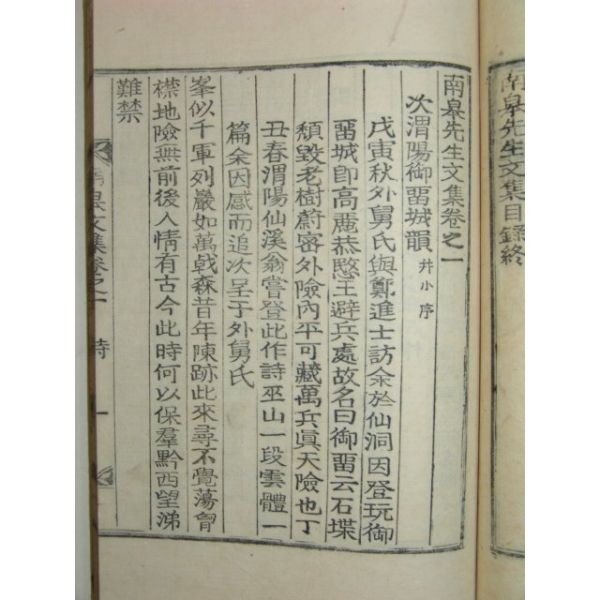 南皐先生文集目錄終
南皐先生文集卷之一
次渭陽御畱城韻 并小序
戊寅秋外舅氏與鄭進士訪余於仙洞因登玩御
畱城卽高麗恭愍王避兵處故名曰御畱云石堞
頹毀老樹蔚密外險內平可藏萬兵眞天險也丁
丑春渭陽仙溪翁嘗登此作詩巫山一段雲體一
篇余因感而追次呈于外舅氏
峯似千軍列巖如萬戟森昔年陳跡此來尋不覺蕩㑹
襟地險無前後人情有古今此時何以保羣黔西望涕
難禁
南皐文集卷之一 詩 一